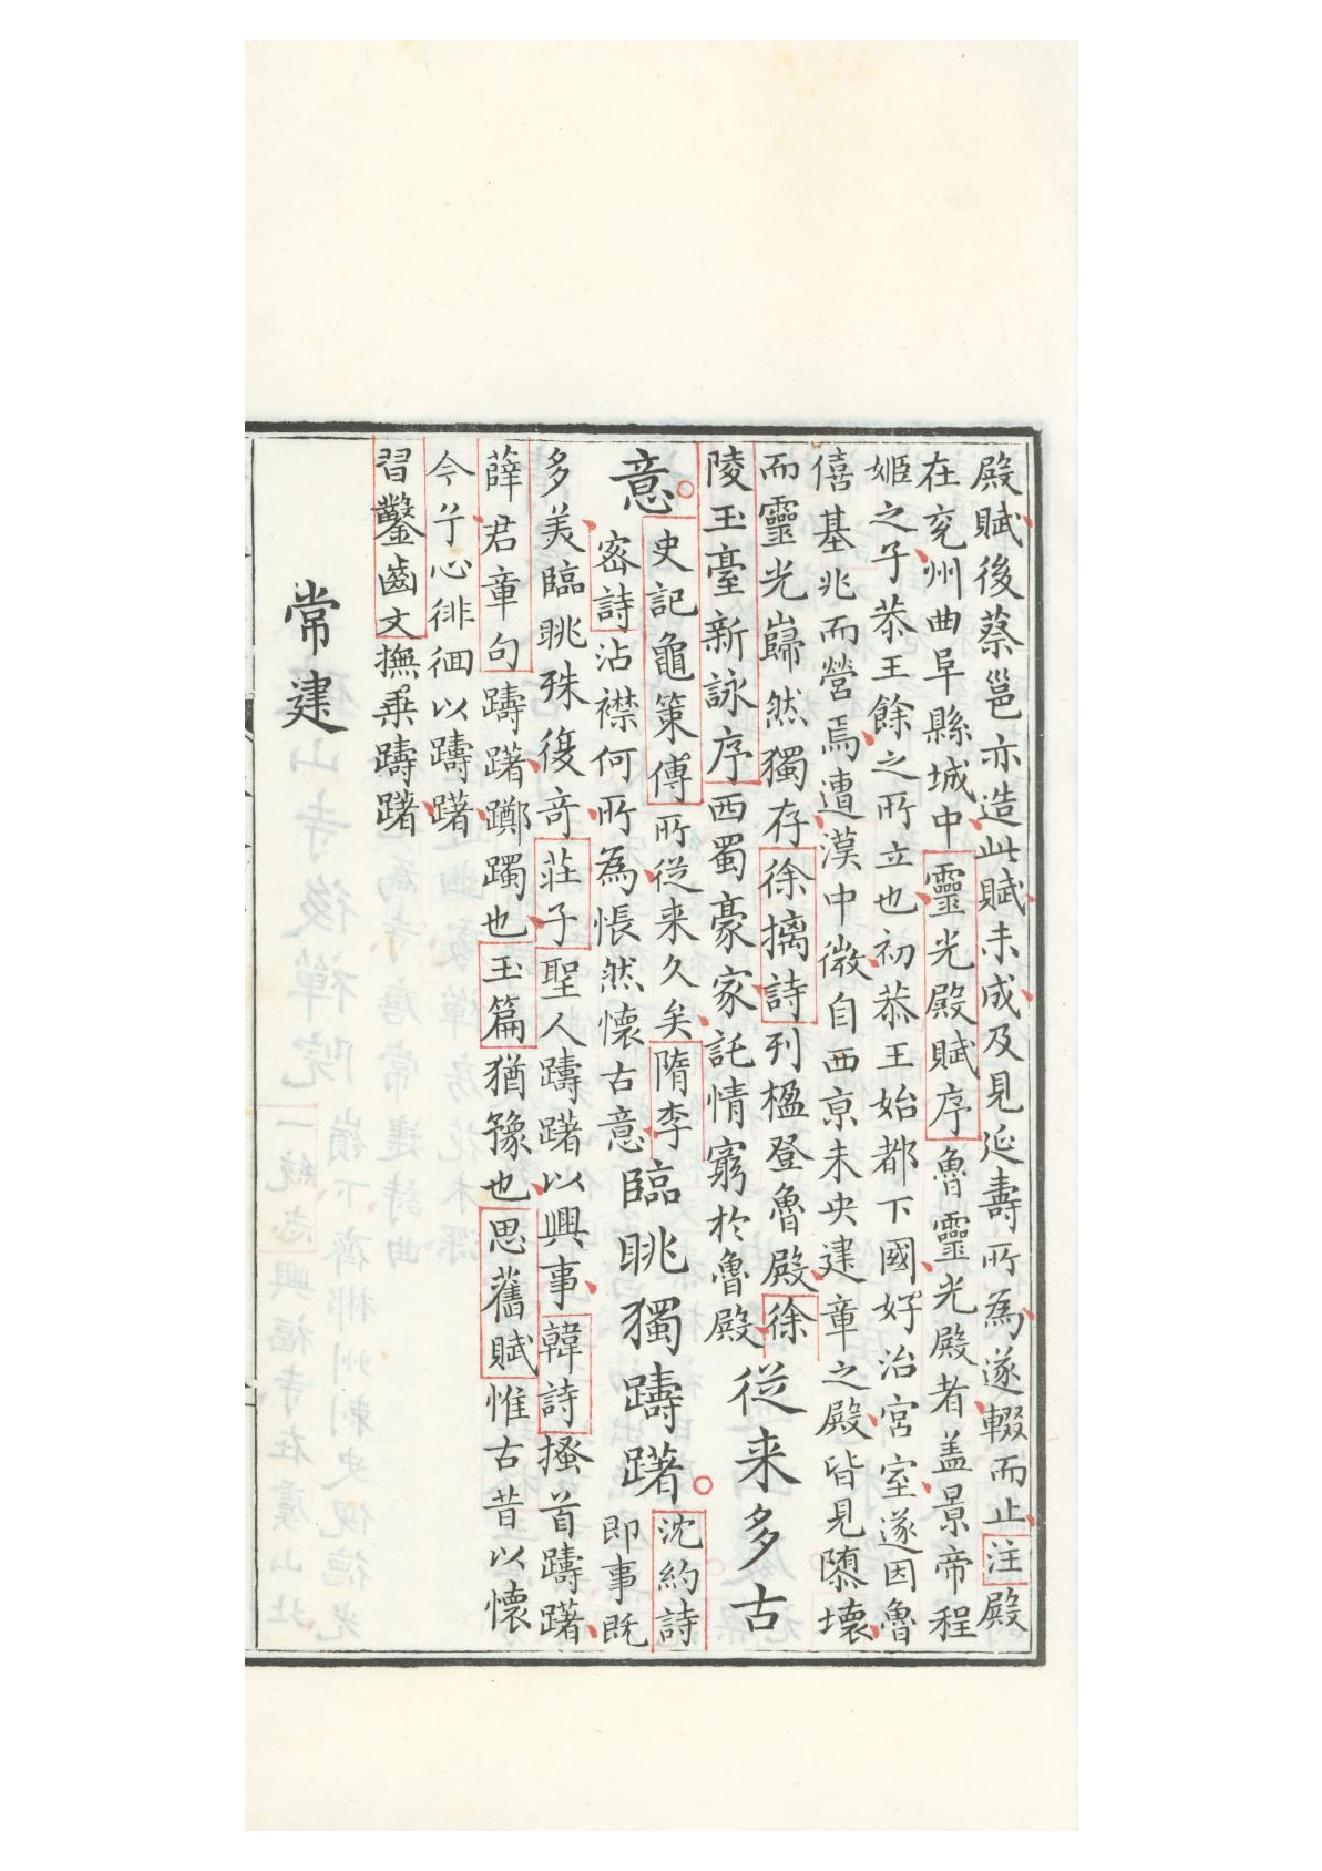 殿賦後蔡邕亦造此賦未成及見延壽所為遂輟而止注殿
在兗州曲阜縣城中靈光殿賦序魯靈光殿者盖景帝程
姬之子恭王餘之所立也初恭王始都下國好治宮室遂因魯
僖基兆而營焉遭漢中微自西京未央建章之殿皆見隳壞
而靈光巋然獨存徐摛詩列楹登魯殿徐
陵玉臺新詠序西蜀豪家託情窮於魯殿
從来多古
意
史記龜策傅所從来久矣隋李
密詩沾襟何所為悵然懷古意
臨眺獨躊躇
沈約詩
即事既
多美臨眺殊復奇莊子聖人躊躇以興事韓詩搔首躊躇
薛君章句躊躇躑躅也玉篇猶豫也思舊賦惟古昔以懷
今兮心徘徊以躊躇
習鑿齒文撫乗躊躇
常建